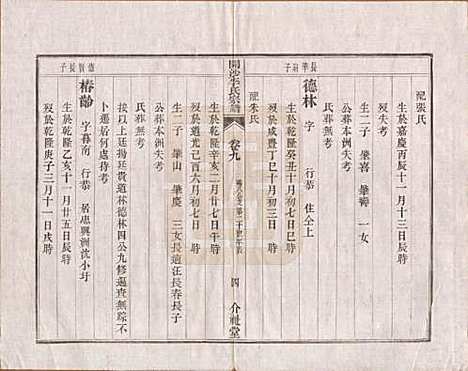 配張氏
生於嘉慶丙辰十一月十三日辰時
歿失考
生二子 肇喜 肇壽 一女
公葬本洲失考
氏葬無考
長華嗣子
德林 字 行恭 住仝上
生於乾隆癸丑十月初七日巳時
歿於咸豐丁巳十月初三日 時
配朱氏
開沙李氏宗譜
卷九
四
介祉堂
生於乾隆辛亥二月初七日午時
歿於道光己酉六月初七日 時
生二子 肇山 肇慶 三女長適汪長春長子
公葬本洲失考
氏葬無考
按以上揚廷貴道林德林四公九修遍查無踪不
卜遷居何處待考
德寶長子
椿齡 字暮南 行恭 居惠興洲沈小圩
生於乾隆乙亥十一月廿五日辰時
歿於乾隆庚子三月十一日戌時